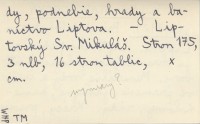 dy, podnebie, hrady a ba-
níctvo Liptova. — Lip-
tovský Sv. Mikuláš. Stron 175,
3 nlb, 16 stron tablic, x
cm.
wymiary?
WHP TM